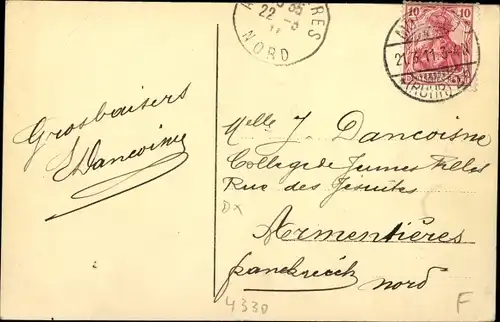 22 - 3
NORD
10 10
21.3.11.3-4N
(RUHR)
Gros baisers
J Dancoisne
Melle J Dancoisne
College de Jeunes Filles
Rue des Jesuites
DX
Armentières
franckreich nord
4330
F